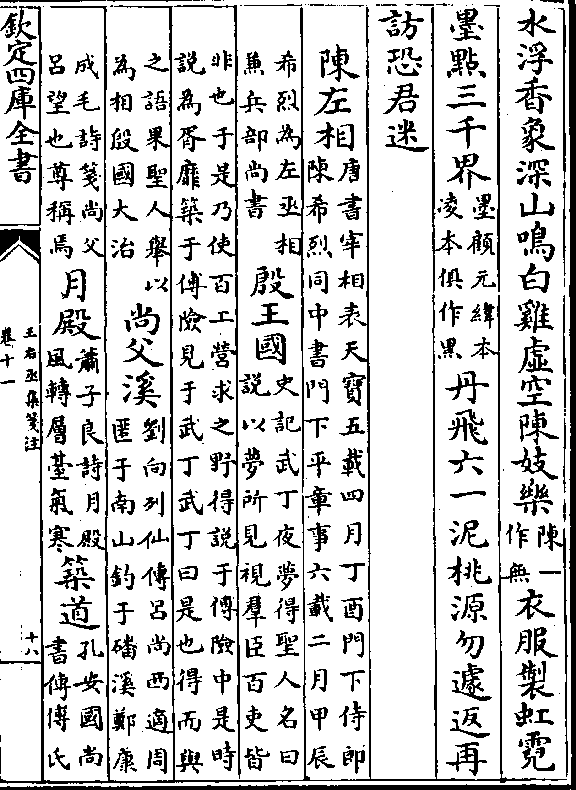 水浮香象深山鳴白雞虛空陳妓樂陳一作無衣服製虹霓
墨點三千界墨顧元緯本凌本俱作黑丹飛六一泥桃源勿遽返再
訪恐君迷
陳左相唐書宰相表天寶五載四月丁酉門下侍郎
陳希烈同中書門下平章事六載二月甲辰
希烈為左丞相
兼兵部尚書
殷王國史記武丁夜夢得聖人名曰
說以夢所見視羣臣百吏皆
非也于是乃使百工營求之野得說于傅險中是時
說為胥靡築于傅險見于武丁武丁曰是也得而與
之語果聖人舉以
為相殷國大治
尚父溪劉向列仙傳呂尚西適周
匿于南山釣于磻溪鄭康
成毛詩箋尚父
呂望也尊稱焉
月殿蕭子良詩月殿
風轉層臺氣寒
築道孔安國尚
書傳傅氏
欽定四庫全書
王右丞集箋注
卷十一
十八